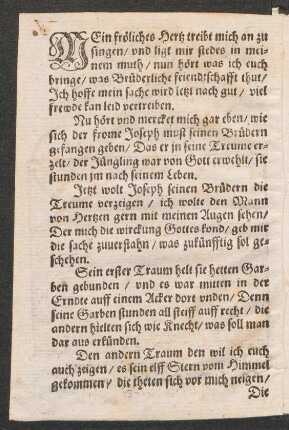 MEin fröliches Hertz treibt mich an zu
singen/ vnd ligt mir stedes in mei-
nem muth/ nun hört was ich euch
bringe/ was Brüderliche feiendtschafft thut/
Ich hoffe mein sache wird letzt nach gut/ viel
frewde kan leid vertreiben.
Nu hört vnd mercket mich gar eben/ wie
sich der frome Joseph must seinen Brüdern
gefangen geben/ Das er jn seine Treume er-
zelt/ der Jüngling war von Gott erwehlt/ sie
stunden jm nach seinem Leben.
Jetzt wolt Joseph seinen Brüdern die
Treume verzeigen/ ich wolte den Mann
von Hertzen gern mit meinen Augen sehen/
Der mich die wirckung Gottes kond/ geb mir
die sache zuuerstahn/ was zukünfftig sol ge-
schehen.
Sein erster Traum helt sie hetten Gar-
ben gebunden/ vnd es war mitten in der
Erndte auff einem Acker dort vnden/ Denn
seine Garben stunden all steiff auff recht/ die
andern hielten sich wie Knecht/ was soll man
dar aus erkünden.
Den andern Traum den wil ich euch
auch zeigen/ es sein elff Stern vom Himmel
gekommen/ die theten sich vor mich neigen/
Die